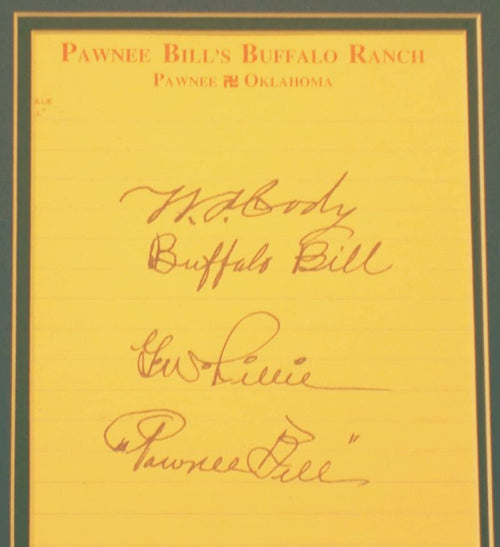 PAWNEE BILL'S BUFFALO RANCH
PAWNEE 卍 OKLAHOMA
W. F. Cody
Buffalo Bill
G W Lillie
"Pawnee Bill"